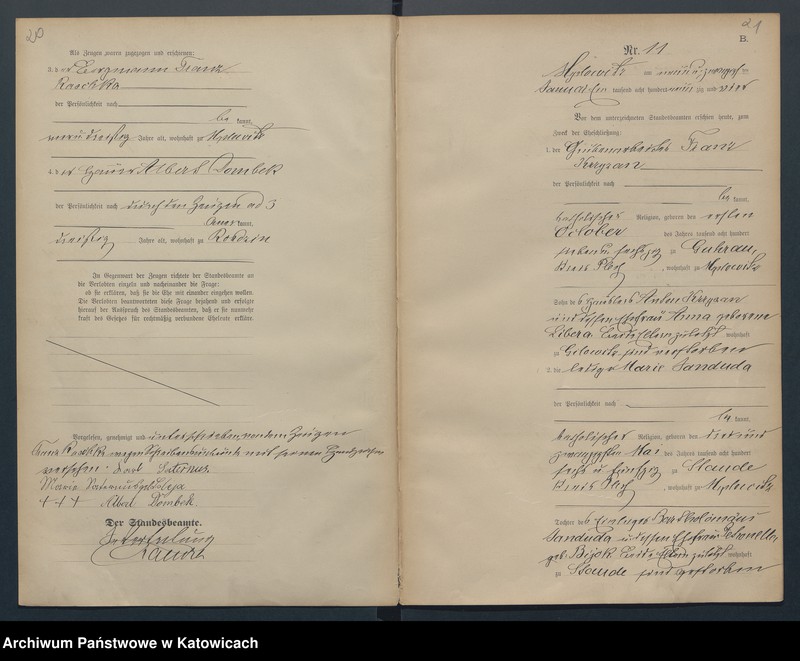 20
Als Zeugen waren zugezogen und erschienen:
3. der Bergmann Franz
Raschka
der Persönlichkeit nach
be kannt,
neununddreißig Jahre alt, wohnhaft zu Myslowitz
4. der Hauer Albert Dombek
der Persönlichkeit nach durch den Zeugen ad 3
aner kannt,
dreißig Jahre alt, wohnhaft zu Rosdzin
In Gegenwart der Zeugen richtete der Standesbeamte an
die Verlobten einzeln und nacheinander die Frage:
ob sie erklären, daß sie die Ehe mit einander eingehen wollen.
Die Verlobten beantworteten diese Frage bejahend und erfolgte
hierauf der Ausspruch des Standesbeamten, daß er sie nunmehr
kraft des Gesetzes für rechtmäßig verbundene Eheleute erkläre.
Vorgelesen, genehmigt und unterschrieben, von dem Zeugen
Franz Raschka wegen Schreibensunkunde mit seinen Handzeichen
versehen. Karl
Maria
+++ Albert Dombek.
Der Standesbeamte.
In Vertretung
21
B.
Nr. 11
Myslowitz am neunundzwanzigsten
Januar tausend acht hundert neunzig und vier
Vor dem unterzeichneten Standesbeamten erschien heute, zum
Zweck der Eheschließung:
1. der Grubenarbeiter Franz
der Persönlichkeit nach
be kannt,
katholischer Religion, geboren den ersten
October des Jahres tausend acht hundert
sieben u. sechzig zu Guhrau,
Kreis Pleß, wohnhaft zu Myslowitz
Sohn des Häuslers Anton
und dessen Ehefrau Anna geborene
Libera, beide Eltern zuletzt wohnhaft
zu sind verstorben
2. die ledige Marie Sanduda
der Persönlichkeit nach
be kannt,
katholischer Religion, geboren den
zwanzigsten Mai des Jahres tausend acht hundert
sechs u. fünfzig zu Staude
Kreis Pleß, wohnhaft zu Myslowitz
Tochter des Einliegers Bartholomäus
Sanduda u. dessen Ehefrau
geb. Bijok beide Eltern zuletzt wohnhaft
zu Staude sind verstorben
Archiwum Państwowe w Katowicach